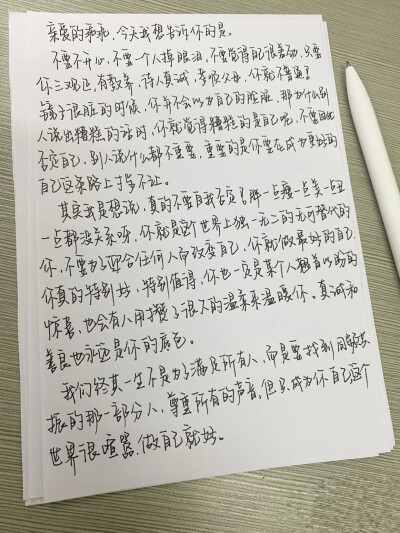 亲爱的乖乖，今天我想告诉你的是。
不要不开心，不要一个人掉眼泪，不要觉得自己很差劲，只要
你三观正，有教养，待人真诚，孝顺父母，你就不普通！
镜子很脏的时候，你并不会以为自己的脸脏，那为什么别
人说出糟糕的话时，你就觉得糟糕的是自己呢，不要因此
否定自己，别人说什么都不重要，重要的是你要在成为更好的
自己这条路上步履不止。
其实我是想说，真的不要自我否定！胖一点瘦一点美一点丑
一点都没关系呀，你就是这个世界上独一无二的无可替代的
你，不要为了迎合任何人而改变自己，你就做最好的自己
你真的特别好，特别值得，你也一定是某个人翘首以盼的
惊喜，也会有人用攒了很久的温柔来温暖你。真诚和
善良也永远是你的底色。
我们终其一生不是为了满足所有人，而是要找到同频共
振的那一部分人，尊重所有的声音，但只成为你自己这个
世界很喧嚣，做自己就好。